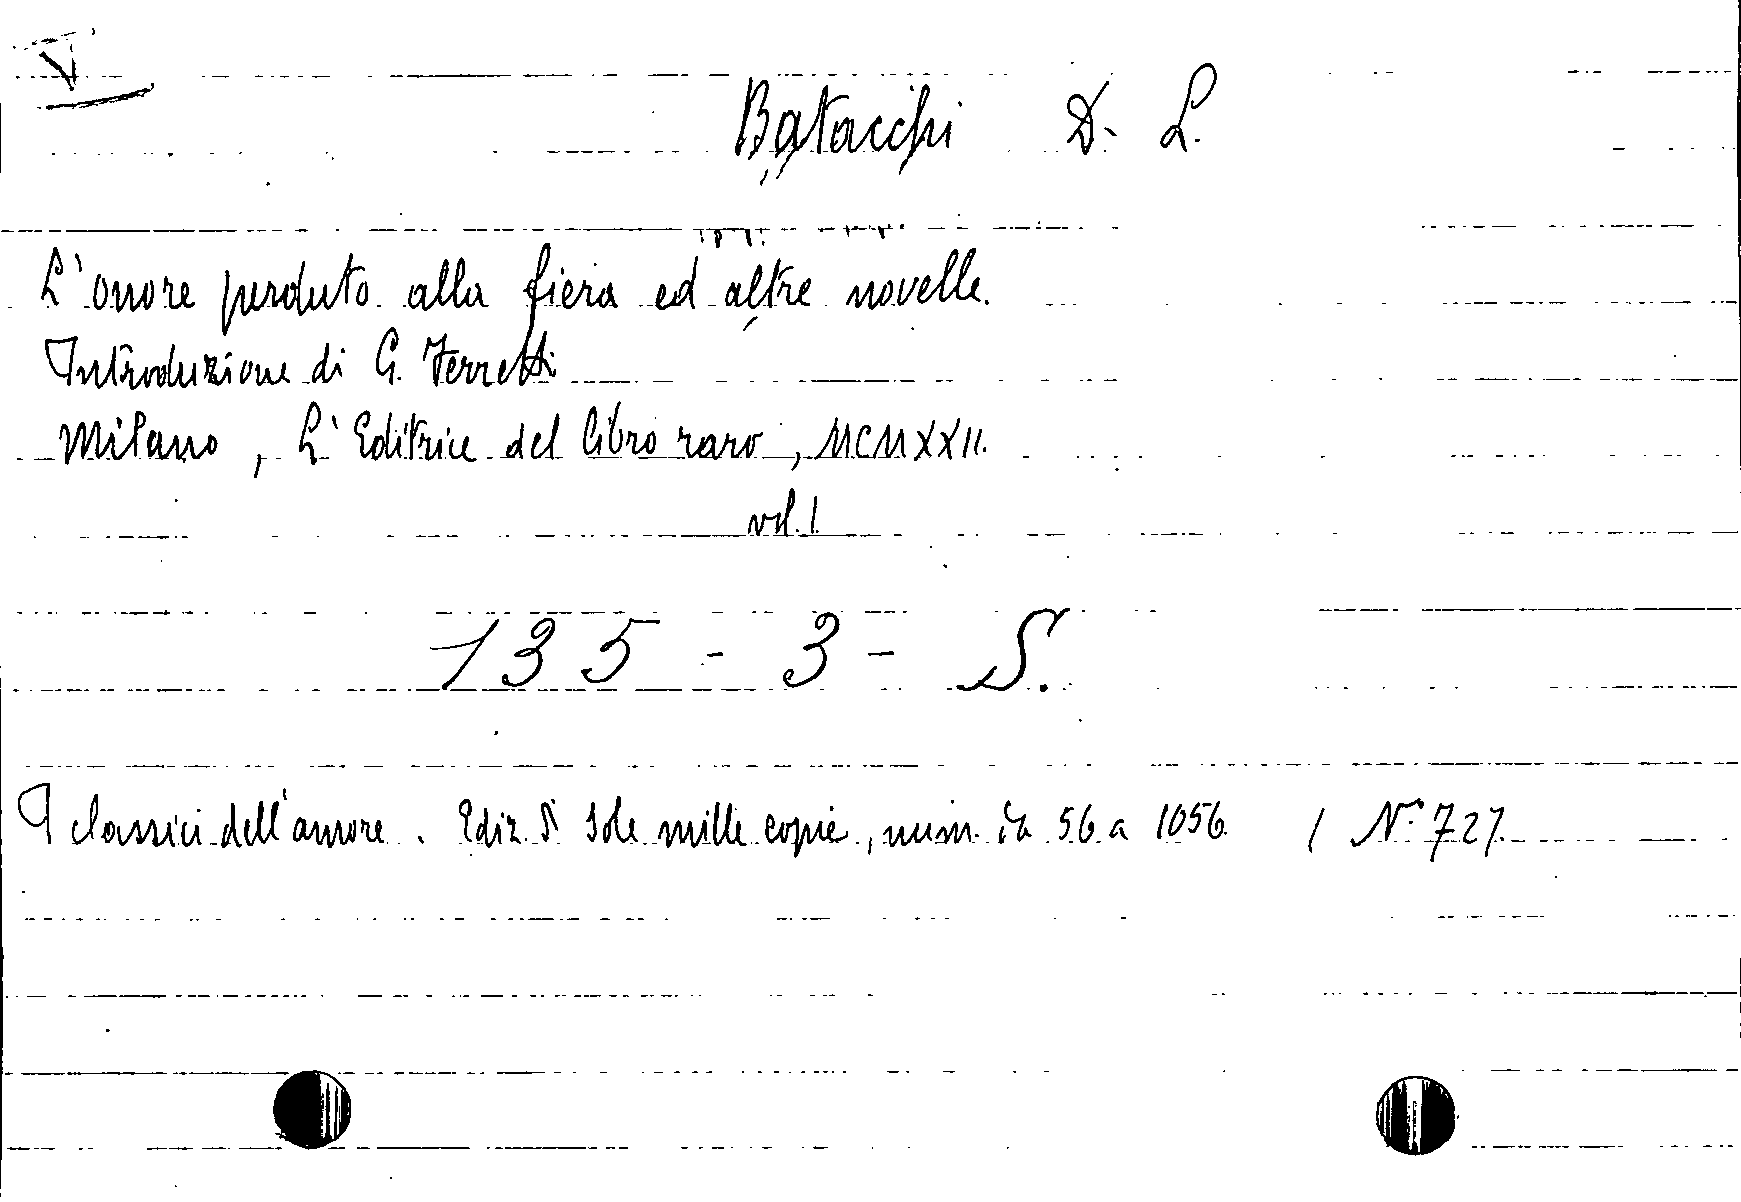 V
Batacchi D. L.
L'onore perduto alla fiera ed altre novelle.
Introduzione di G. Ferretti
Milano, L'Editrice del libro raro, MCMXXII.
vol. 1
135 - 3 - S.
I classici dell'amore. Ediz. di sole mille copie, num. da 56 a 1056. / N.° 727.